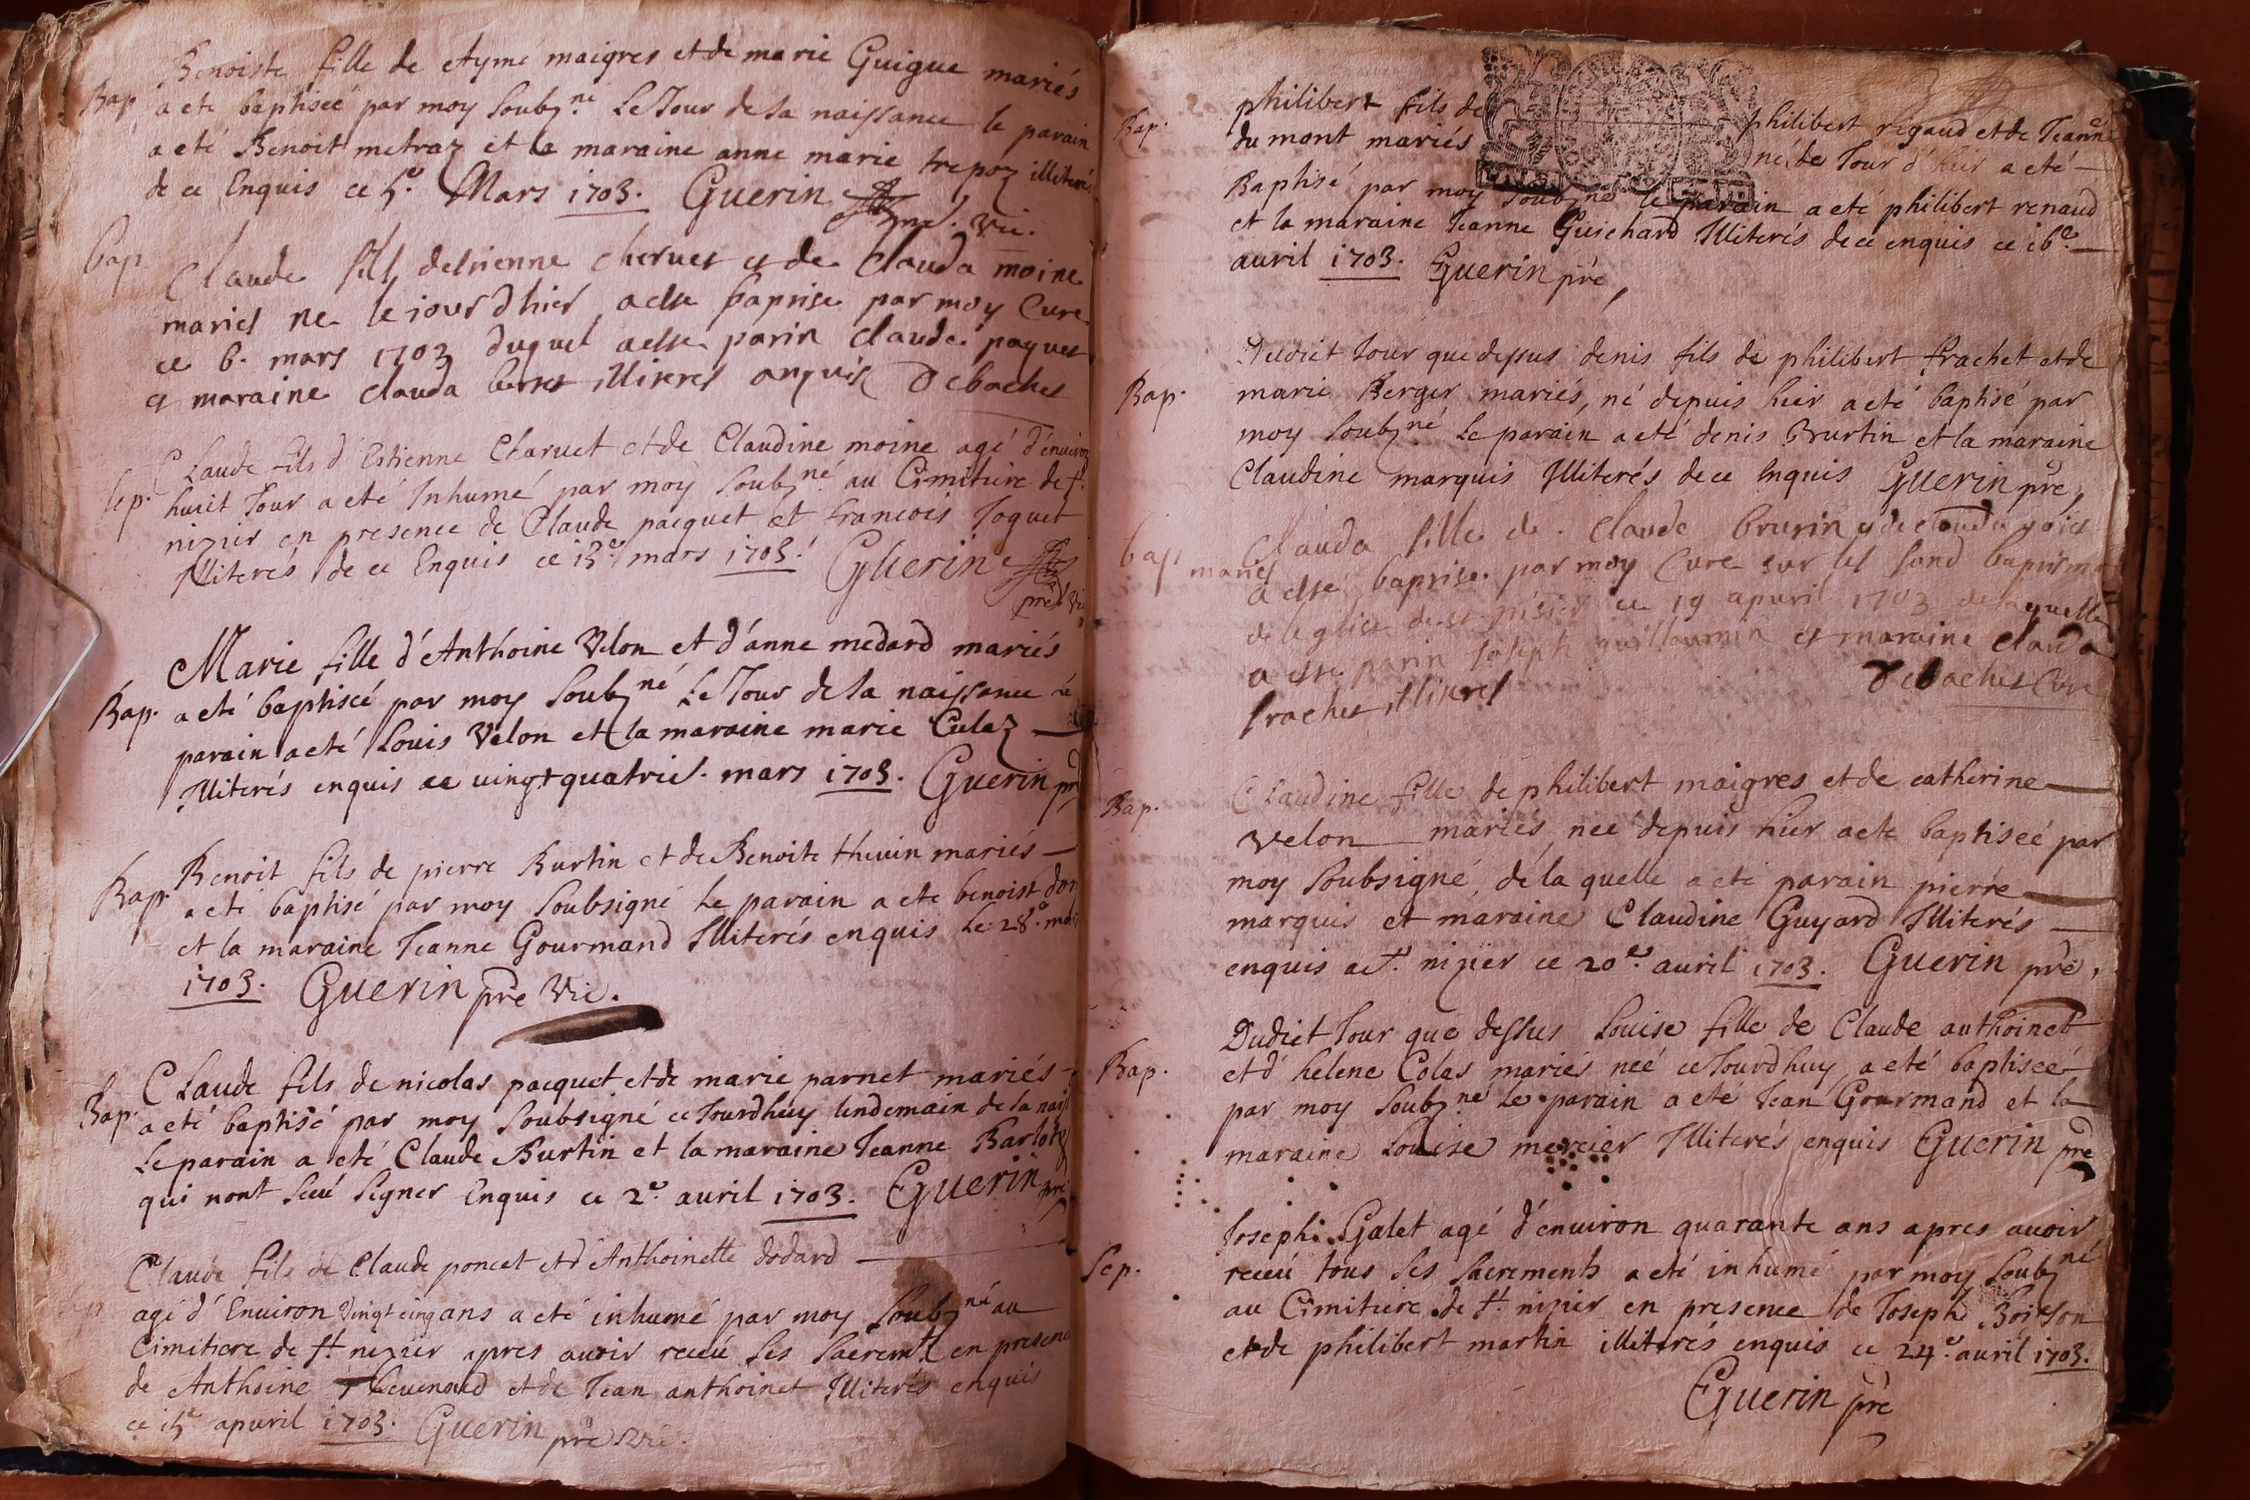 Benoiste fille de Aymé maigres et de marie Guigue mariés
Bap. a eté baptiseé par moy soubzné Le Jour de sa naissance le parain
a eté Benoit metraz et la maraine anne marie trepoz illiterés
de ce Enquis ce 5e. Mars 1703. Guerin pre. vic.
bap. Claude fils destienne chervet et de clauda moine
maries ne le iour d hier a este baptise par moy Cure
ce 6. mars 1703 duquel a este parin claude paquet
et maraine clauda illiteres anquis Debaches
Claude fils d'Estienne Charvet et de Claudine moine agé d'environ
Sep. huict Jour a eté Inhumé par moy soubzné au Cimitiere de st.
nizier en presence de Claude pacquet et francois Joquet
Illiterés de ce Enquis ce 13e mars 1703. Guerin
pre vic
Marie fille d'Anthoine Velon et d'anne medard mariés
Bap. a eté baptiseé par moy soubzné Le Jour de sa naissance le
parain a eté Louis Velon et la maraine marie Culaz
Illiterés enquis ce vingt quatrie. mars 1703. Guerin pre
Benoit fils de pierre Burtin et de Benoite thevin mariés
Bap. a eté baptisé par moy soubsigné Le parain a eté benoist
et la maraine Jeanne Gourmand Illiterés enquis Le 28e. mars
1703. Guerin pre Vic.
Claude fils de nicolas pacquet et de marie parnet mariés
Bap. a eté baptisé par moy soubsigné ce Jourdhuy lendemain de sa naiss
Le parain a eté Claude Burtin et la maraine Jeanne
qui nont sceu signer Enquis ce 2e. avril 1703. Guerin pre
Claude fils de Claude poncet et d'Anthoinette dodard
agé d'Environ vingt cinq ans a eté inhumé par moy soubzné au
Cimitiere de st. nizier apres avoir receu ses sacremts en presence
de Anthoine thevenard et de Jean anthoinet Illiterés enquis
ce 15e apvril 1703. Guerin pre Vic.
philibert fils de philibert rigaud et de Jeanne
Bap. du mont mariés né le Jour d'hier a eté
Baptisé par moy soubzné le parain a eté philibert renaud
et la maraine Jeanne Guichard Illiterés de ce enquis ce 16e.
avril 1703. Guerin pre,
Dudict Jour que dessus denis fils de philibert frachet et de
Bap. marie Berger mariés, né depuis hier a eté baptisé par
moy soubzné Le parain a eté denis Brurtin et la maraine
Claudine marquis Illiterés de ce Enquis Guerin pre,
bap. Clauda fille de claude brurin et de clauda
maries a este baptise par moy Cure sur les fond baptisma
de leglise de st nisier ce 19 apvril 1703 de laquelle
a este parin Joseph guillaumin et maraine clauda
frachet illiteres Debaches Cure
Claudine fille de philibert maigres et de catherine
Bap. Velon mariés, neé depuis hier a eté baptiseé par
moy soubsigné, de la quelle a eté parain pierre
marquis et maraine Claudine Guyard Illiterés
enquis a st. nizier ce 20e. avril 1703. Guerin pre,
Dudict Jour que dessus Louise fille de Claude anthoinet
Bap. et d'helene Colas mariés neé ce Jourdhuy a eté baptiseé
par moy soubzné Le parain a eté Jean Gourmand et la
maraine Louise mercier Illiterés enquis Guerin pre
Joseph Galet agé d'environ quarante ans apres avoir
Sep. receu tous ses sacrements a eté inhumé par moy soubzné
au Cimitiere de st. nizier en presence de Joseph Boisson
et de philibert martin illiterés enquis ce 24e. avril 1703.
Guerin pre